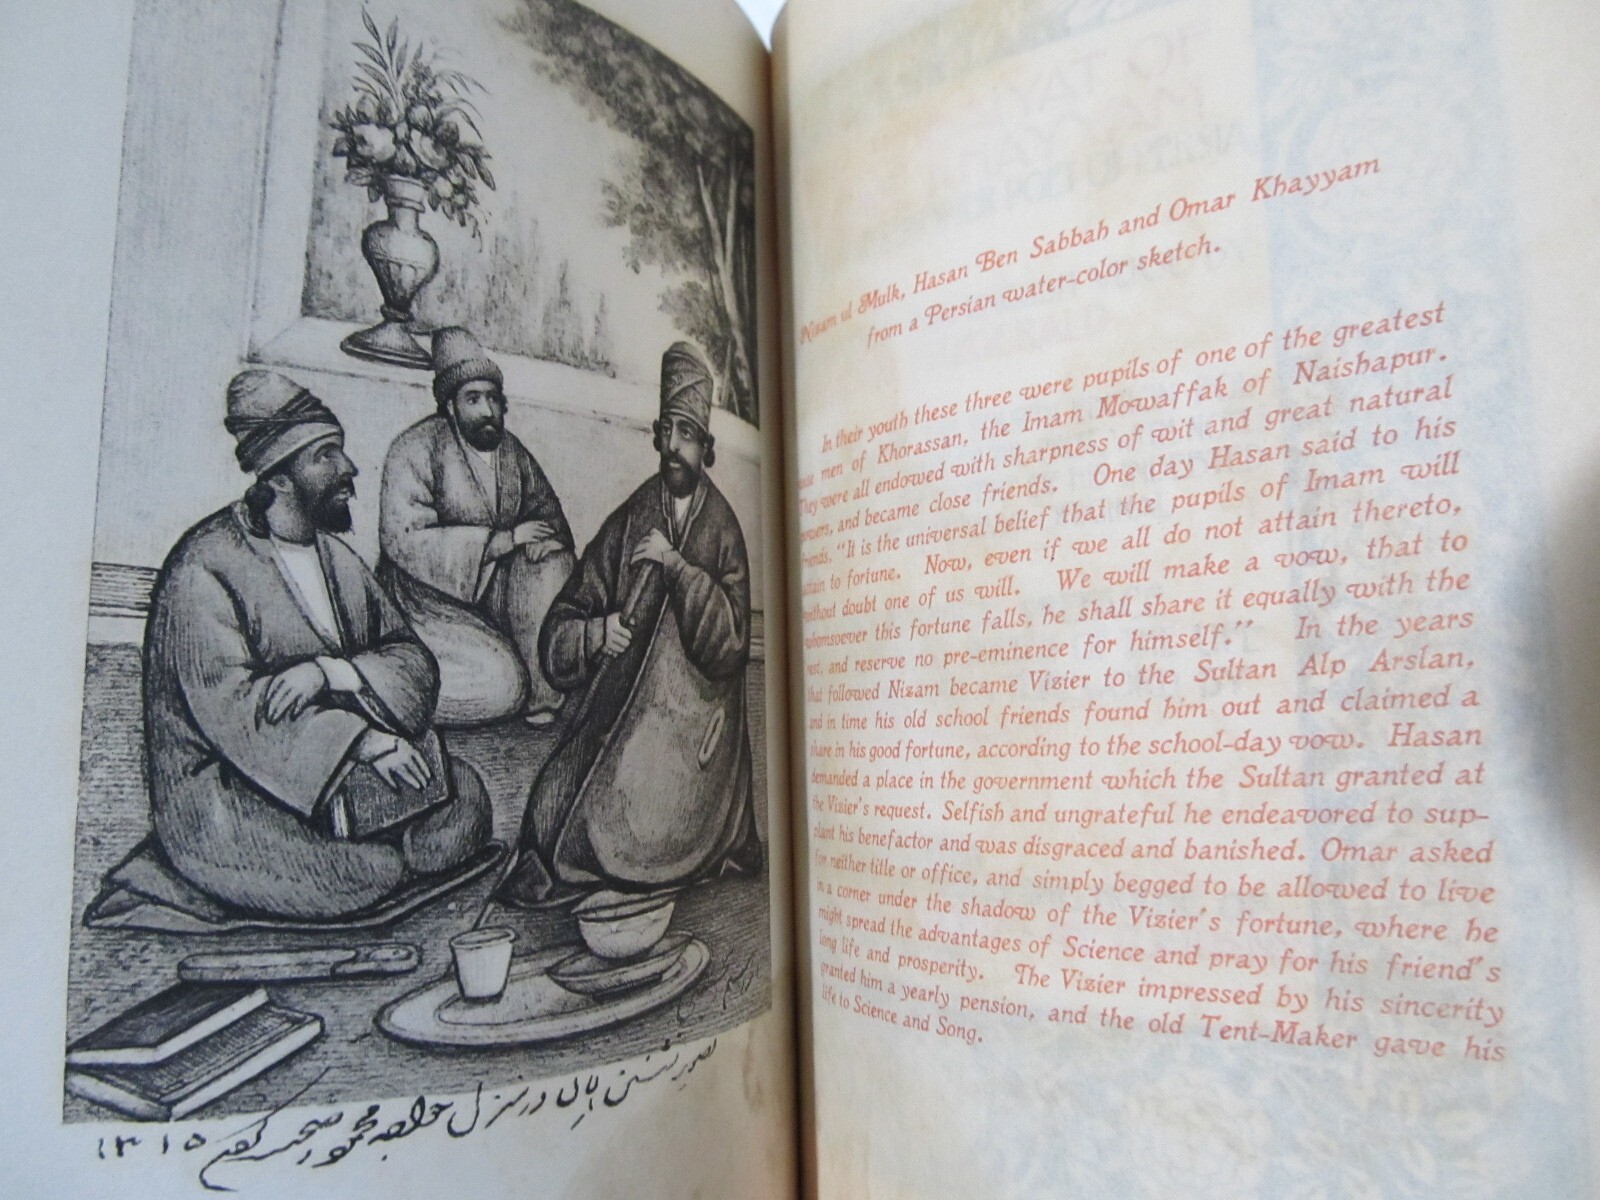 تصویر نشستن اهالی در منزل خواجه محمود
۱۳۱۵
Nizam ul Mulk, Hasan Ben Sabbah and Omar Khayyam
from a Persian water-color sketch.
In their youth these three were pupils of one of the greatest
wise men of Khorassan, the Imam Mowaffak of Naishapur.
They were all endowed with sharpness of wit and great natural
powers, and became close friends. One day Hasan said to his
friends, "It is the universal belief that the pupils of Imam will
attain to fortune. Now, even if we all do not attain thereto,
without doubt one of us will. We will make a vow, that to
whomsoever this fortune falls, he shall share it equally with the
rest, and reserve no pre-eminence for himself." In the years
that followed Nizam became Vizier to the Sultan Alp Arslan,
and in time his old school friends found him out and claimed a
share in his good fortune, according to the school-day vow. Hasan
demanded a place in the government which the Sultan granted at
the Vizier's request. Selfish and ungrateful he endeavored to sup-
plant his benefactor and was disgraced and banished. Omar asked
for neither title or office, and simply begged to be allowed to live
in a corner under the shadow of the Vizier's fortune, where he
might spread the advantages of Science and pray for his friend's
long life and prosperity. The Vizier impressed by his sincerity
granted him a yearly pension, and the old Tent-Maker gave his
life to Science and Song.